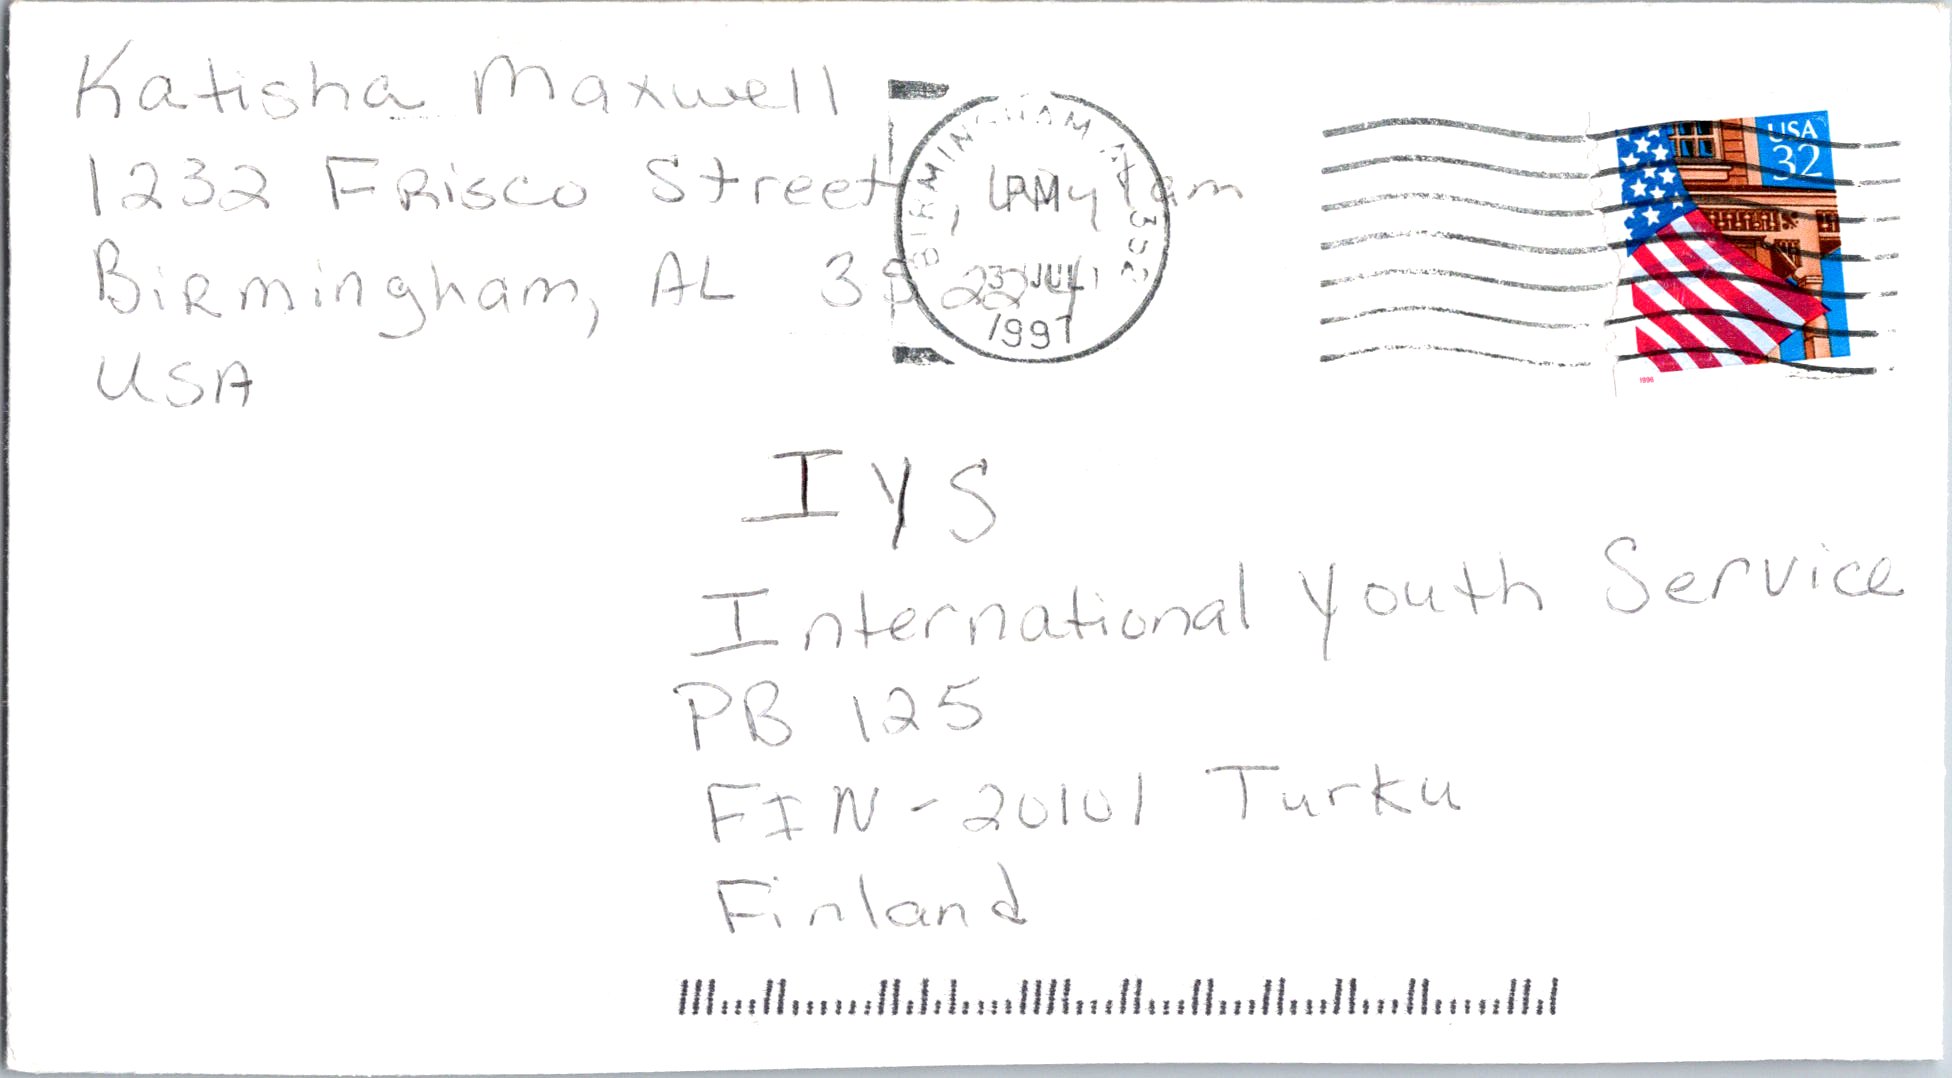 Katisha Maxwell
1232 Frisco Street,
Birmingham, AL
USA
BIRMINGHAM AL 352
PM
23 JUL
1997
USA
32
1996
IYS
International Youth Service
PB 125
FIN - 20101 Turku
Finland